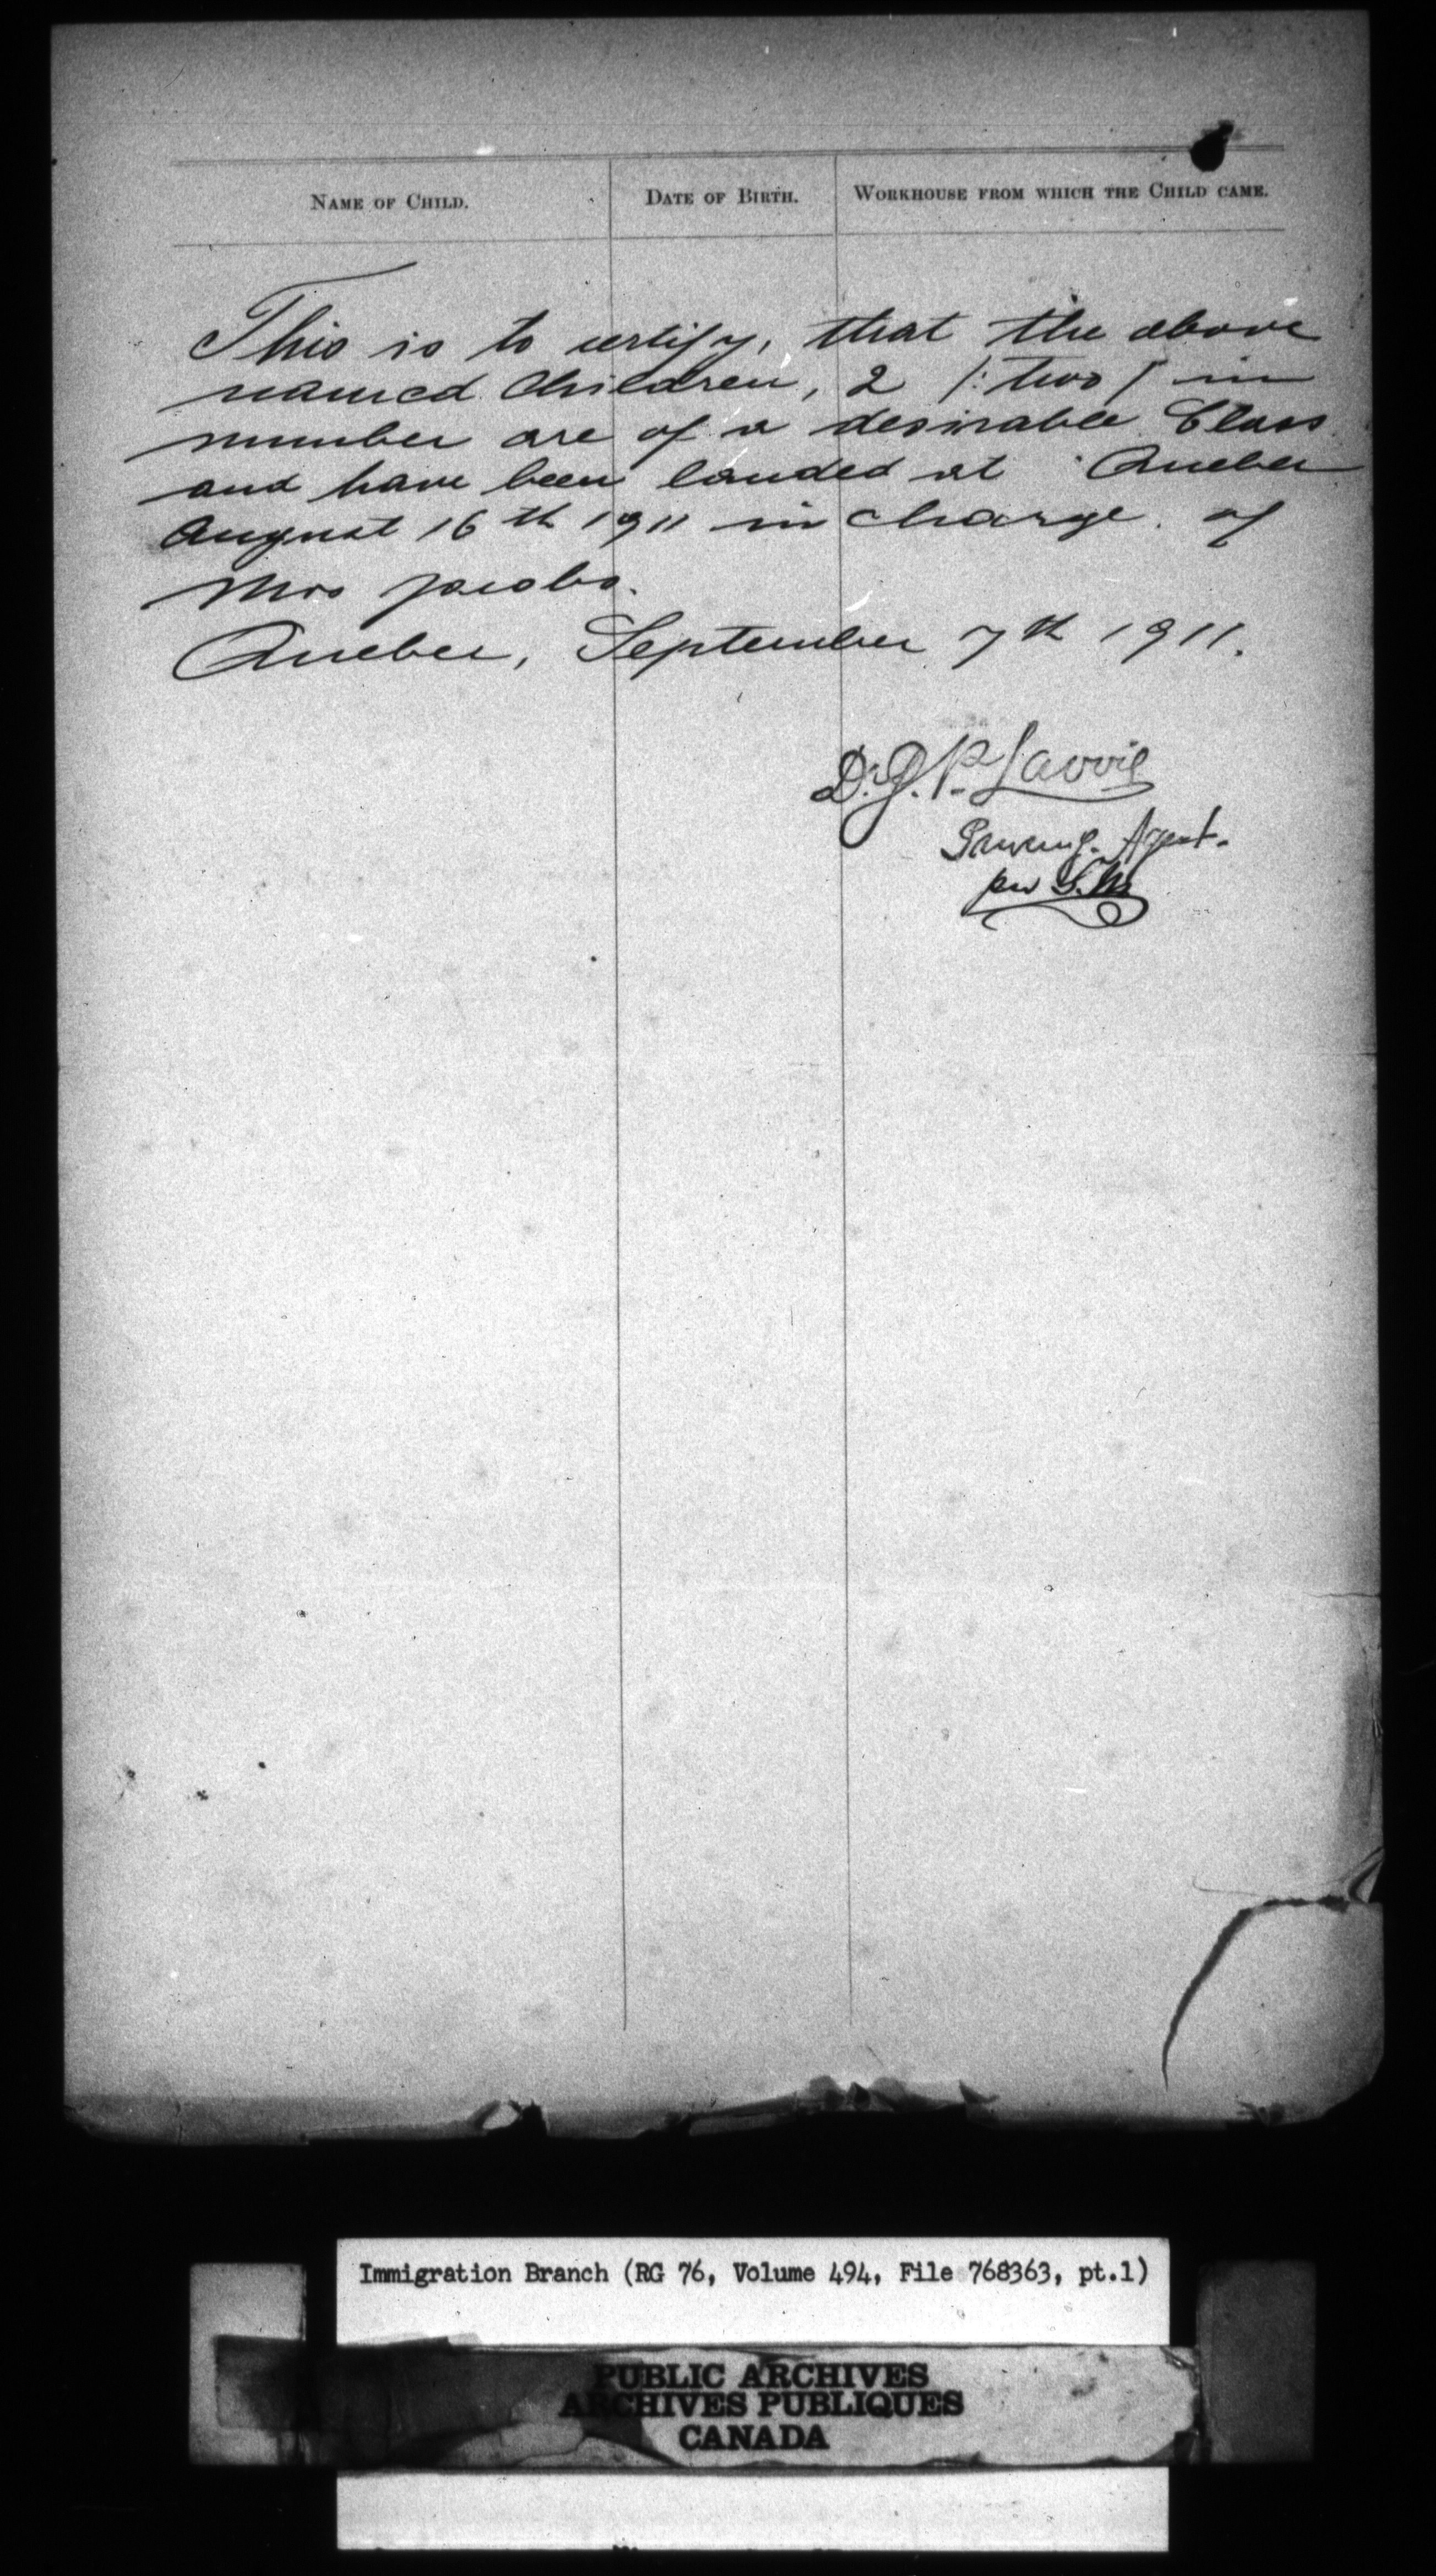 NAME OF CHILD. DATE OF BIRTH. WORKHOUSE FROM WHICH THE CHILD CAME.
This is to certify, that the above
named Children, 2 /: two / in
number are of a desirable Class
and have been landed at Quebec
August 16th 1911 in charge of
Mrs Jacobs.
Quebec, September 7th 1911.
Dr. J. P. Lavoie
Agent.
per
Immigration Branch (RG 76, Volume 494, File 768363, pt.1)
PUBLIC ARCHIVES
ARCHIVES PUBLIQUES
CANADA